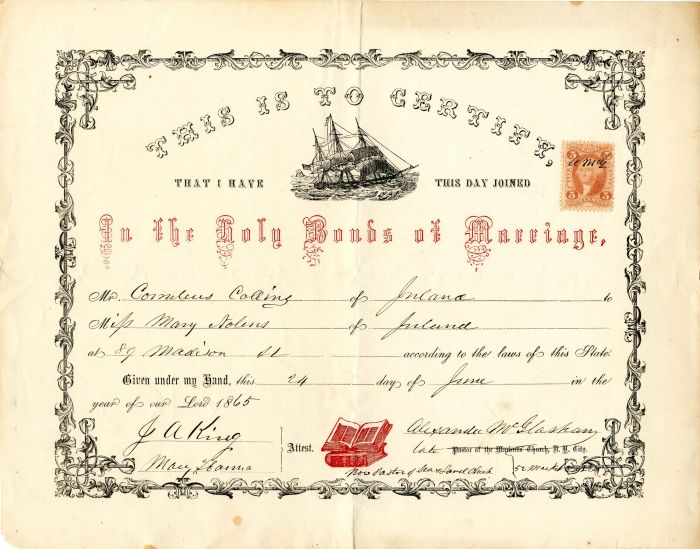 THIS IS TO CERTIFY,
THAT I HAVE THIS DAY JOINED
In the Holy Bonds of Marriage,
Mr. Cornelius Colling of Irland to
Miss Mary of Irland
at 89 Madison St according to the laws of this State
Given under my Hand, this 24 day of June in the
year of our Lord 1865
J A King Attest. Alexander McGlashan
Mary late Pastor of the Mariners Church, N. Y. City.
Now Pastor of Sea & Land Chch 52 Market
5 5